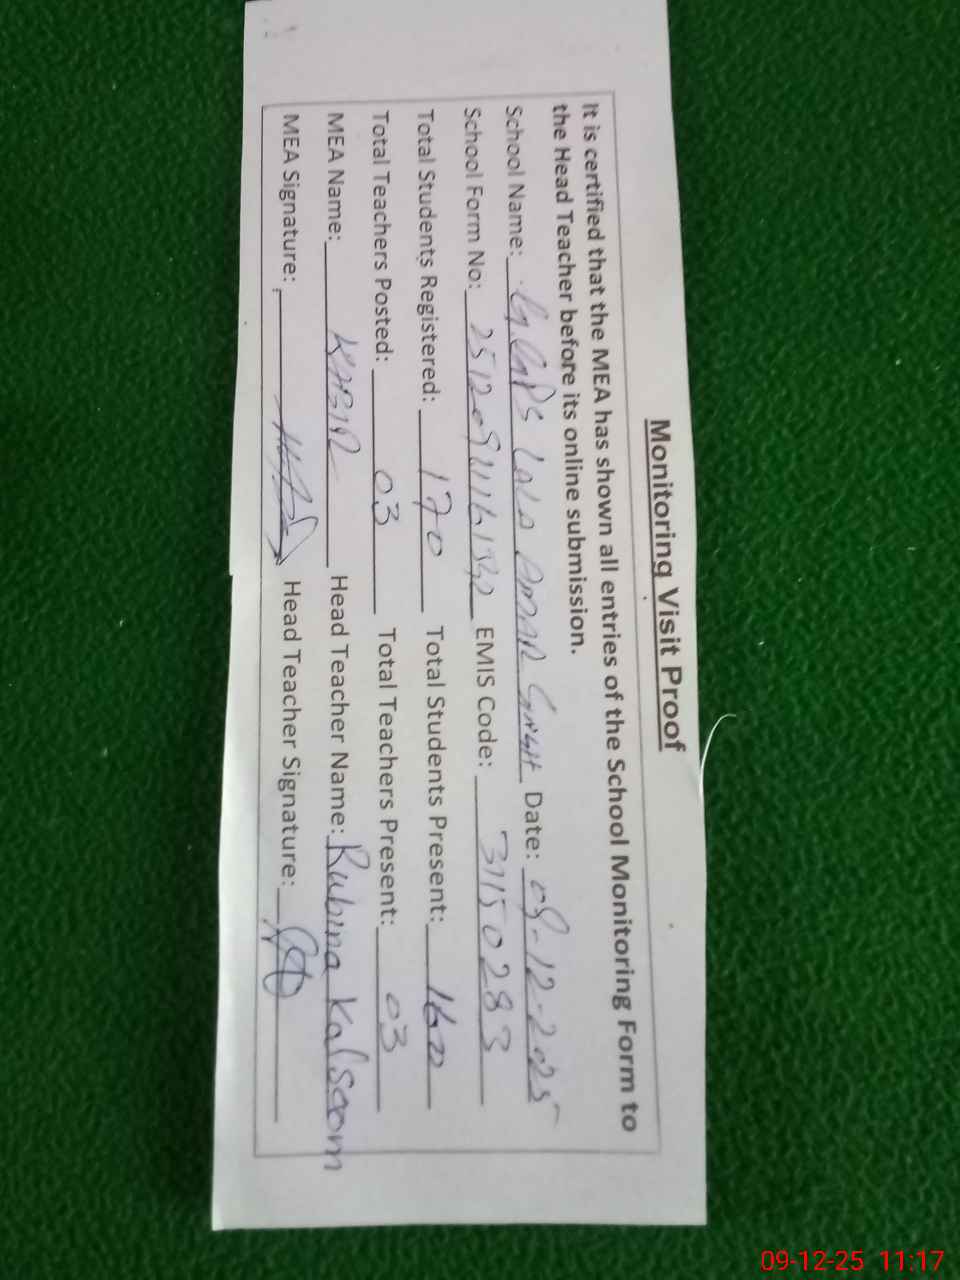 Monitoring Visit Proof
It is certified that the MEA has shown all entries of the School Monitoring Form to
the Head Teacher before its online submission.
School Name: GGPS LALA AMAR Date: 09-12-2025
School Form No: EMIS Code: 31150283
Total Students Registered: 170 Total Students Present: 160
Total Teachers Posted: 03 Total Teachers Present: 03
MEA Name: KABIR Head Teacher Name: Rubina Kalsoom
MEA Signature: Head Teacher Signature:
09-12-25 11:17